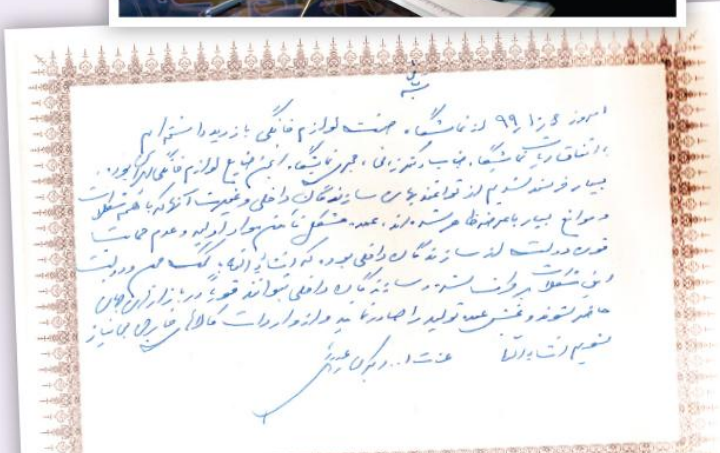 امروز ۹۹ از نمایشگاه صنعت لوازم خانگی بازدید داشته‌ایم
به اتفاق ریاست نمایشگاه جناب دکتر زمانی، مجری نمایشگاه انجمن صنایع لوازم خانگی ایران بود.
بسیار خرسند شدیم از توانمندیهای سازندگان داخلی و غیرت آنها که با همه مشکلات
و موانع بسیار با عرضه ظاهر شده‌اند، عمده مشکل تامین مواد اولیه و عدم حمایت
قوی دولت از سازندگان داخلی بود، که انشاءالله با کمک مجلس و دولت
این مشکلات برداشته شود و سازندگان داخلی بتوانند قویاً در بازارهای جهانی
حاضر شوند و بخش عمده تولید را صادر نمایند و از واردات کالاهای خارجی بی نیاز
شویم انشاءالله